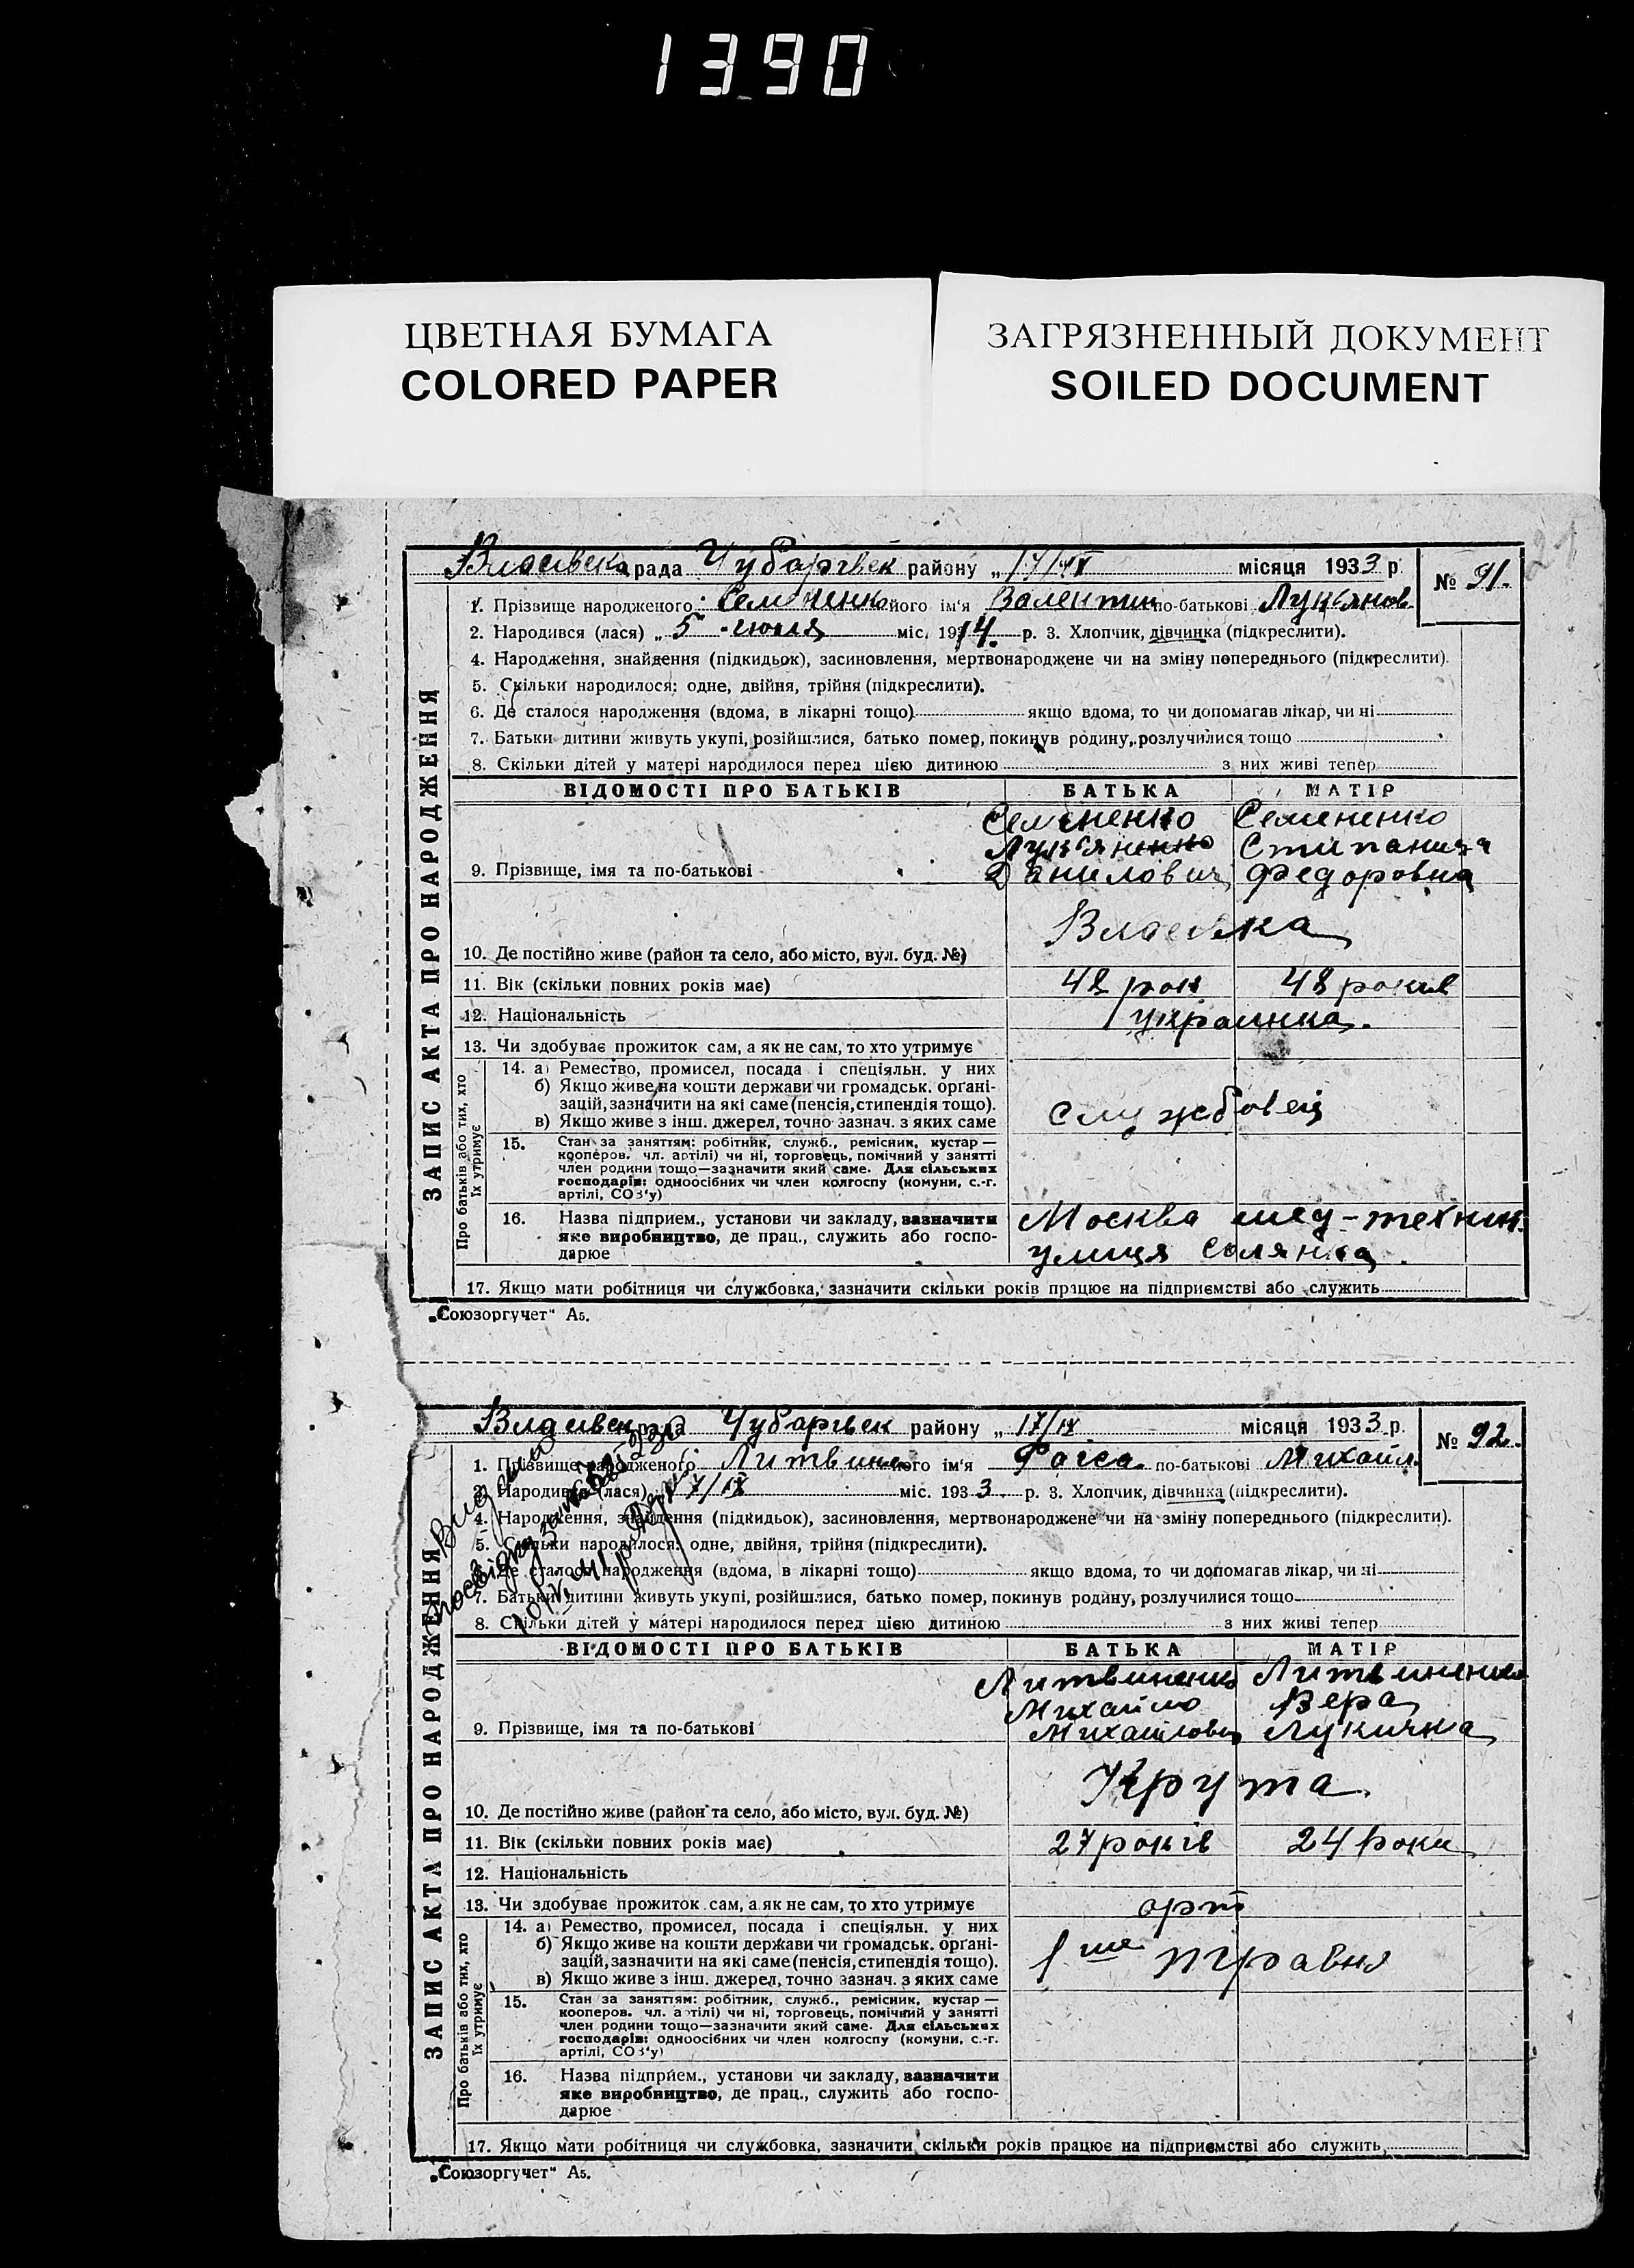 1390
ЦВЕТНАЯ БУМАГА
COLORED PAPER
ЗАГРЯЗНЕННЫЙ ДОКУМЕНТ
SOILED DOCUMENT
21
Власівська рада Чубарівськ району „ 17/IX місяця 1933 р. № 91.
ЗАПИС АКТА ПРО НАРОДЖЕННЯ
1. Прізвище народженого Семененко його ім'я Валентин по-батькові Лук'янов
2. Народився (лася) „ 5 июля міс. 1914. р. 3. Хлопчик, дівчинка (підкреслити).
4. Народження, знайдення (підкидьок), засиновлення, мертвонароджене чи на зміну попереднього (підкреслити).
5. Скільки народилося: одне, двійня, трійня (підкреслити).
6. Де сталося народження (вдома, в лікарні тощо) якщо вдома, то чи допомагав лікар, чи ні
7. Батьки дитини живуть укупі, розійшлися, батько помер, покинув родину, розлучилися тощо
8. Скільки дітей у матері народилося перед цією дитиною з них живі тепер
ВІДОМОСТІ ПРО БАТЬКІВ БАТЬКА МАТІР
Семененко Семененко
Лук'яненко Стипания
9. Прізвище, імя та по-батькові Данилович Федоровна
10. Де постійно живе (район та село, або місто, вул. буд. №) Власівка
11. Вік (скільки повних років має) 48 рок 48 років
12. Національність украинка.
13. Чи здобуває прожиток сам, а як не сам, то хто утримує
Про батьків або тих, хто їх утримує
14. а) Ремество, промисел, посада і спеціяльн. у них
б) Якщо живе на кошти держави чи громадськ. орґані-
зацій, зазначити на які саме (пенсія, стипендія тощо).
в) Якщо живе з інш. джерел, точно зазнач. з яких саме
службовец
15. Стан за заняттям: робітник, служб., ремісник, кустар —
кооперов. чл. артілі) чи ні, торговець, помічний у занятті
член родини тощо—зазначити який саме. Для сільських
господарів: одноосібних чи член колгоспу (комуни, с.-г.
артілі, СОЗ'у)
16. Назва підприєм., установи чи закладу, зазначити Москва мед-техник.
яке виробництво, де прац., служить або госпо- улиця Солянка.
дарює
17. Якщо мати робітниця чи службовка, зазначити скільки років працює на підприємстві або служить
„Союзоргучет" А5.
Власівськ рада Чубарівськ району „ 17/IX місяця 1933 р. № 92.
ЗАПИС АКТА ПРО НАРОДЖЕННЯ
1. Прізвище народженого Литвинен його ім'я Раиса по-батькові Михайл.
2. Народився (лася) 7/IX міс. 1933 р. 3. Хлопчик, дівчинка (підкреслити).
4. Народження, знайдення (підкидьок), засиновлення, мертвонароджене чи на зміну попереднього (підкреслити).
5. Скільки народилося: одне, двійня, трійня (підкреслити).
6. Де сталося народження (вдома, в лікарні тощо) якщо вдома, то чи допомагав лікар, чи ні
7. Батьки дитини живуть укупі, розійшлися, батько помер, покинув родину, розлучилися тощо
8. Скільки дітей у матері народилося перед цією дитиною з них живі тепер
Видано
посвідку за
ВІДОМОСТІ ПРО БАТЬКІВ БАТЬКА МАТІР
Литвиненко Литвиненко
Михайло Вера
9. Прізвище, імя та по-батькові Михайлович Лукична
10. Де постійно живе (район та село, або місто, вул. буд. №) Крута
11. Вік (скільки повних років має) 27 років 24 роки
12. Національність
13. Чи здобуває прожиток сам, а як не сам, то хто утримує арт
Про батьків або тих, хто їх утримує
14. а) Ремество, промисел, посада і спеціяльн. у них
б) Якщо живе на кошти держави чи громадськ. орґані-
зацій, зазначити на які саме (пенсія, стипендія тощо).
в) Якщо живе з інш. джерел, точно зазнач. з яких саме
1ше травня
15. Стан за заняттям: робітник, служб., ремісник, кустар —
кооперов. чл. артілі) чи ні, торговець, помічний у занятті
член родини тощо—зазначити який саме. Для сільських
господарів: одноосібних чи член колгоспу (комуни, с.-г.
артілі, СОЗ'у)
16. Назва підприєм., установи чи закладу, зазначити
яке виробництво, де прац., служить або госпо-
дарює
17. Якщо мати робітниця чи службовка, зазначити скільки років працює на підприємстві або служить
„Союзоргучет" А5.